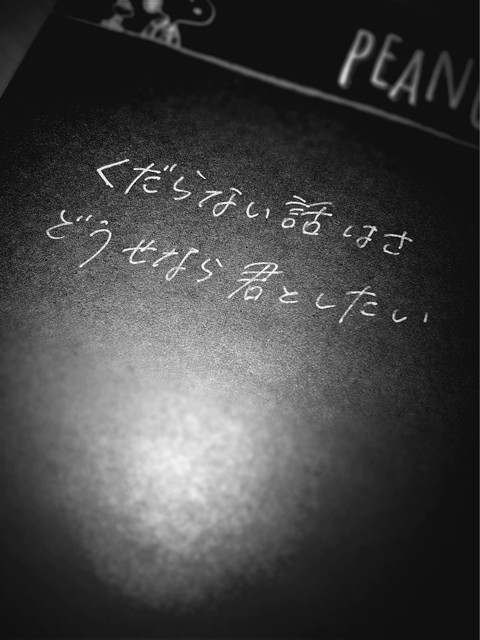 PEANU
くだらない話はさ
どうせなら君としたい